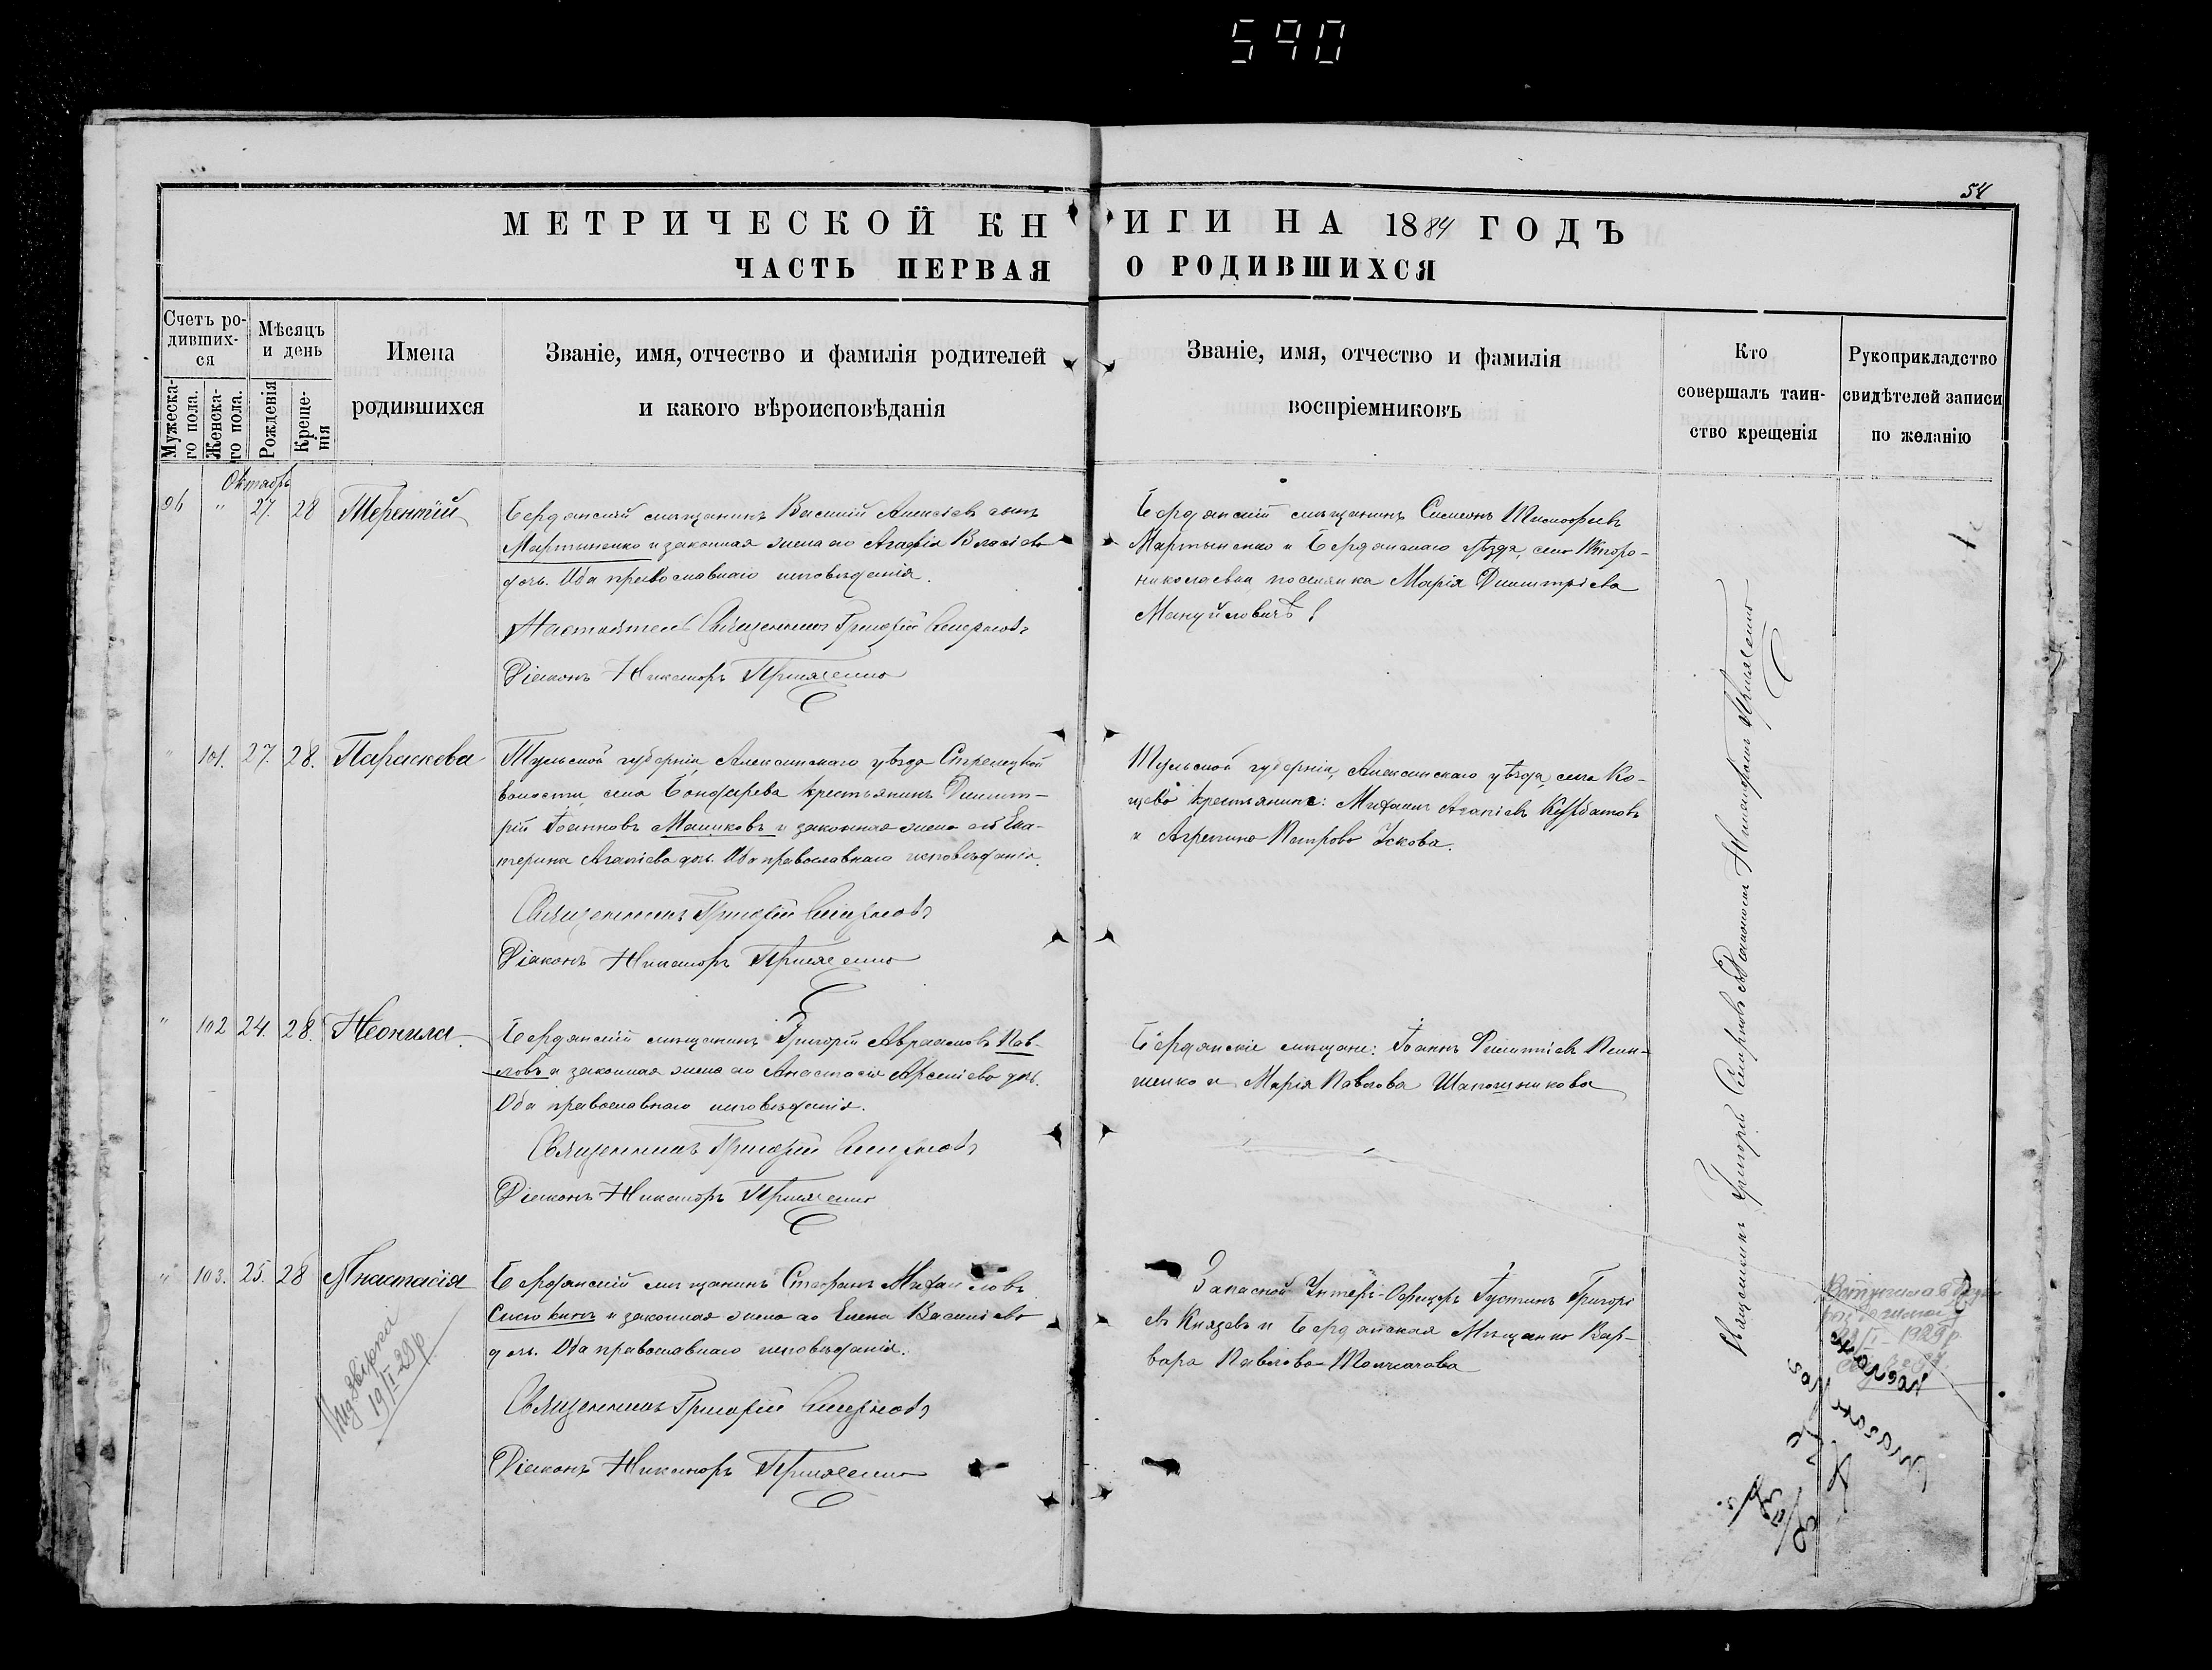 590
54
МЕТРИЧЕСКОЙ КНИГИ НА 1884 ГОДЪ
ЧАСТЬ ПЕРВАЯ О РОДИВШИХСЯ
Счетъ ро-
дивших-
ся
Мужеска-
го пола.
Женска-
го пола.
Мѣсяцъ
и день
Рожденія
Креще-
нія
Имена
родившихся
Званіе, имя, отчество и фамилія родителей
и какого вѣроисповѣданія
Званіе, имя, отчество и фамилія
воспріемниковъ
Кто
совершалъ таин-
ство крещенія
Рукоприкладство
свидѣтелей записи
по желанію
Октябрь
96 " 27. 28 Терентій
Бердянскій мѣщанинъ Василій Алексіевъ сынъ
Мартыненко и законная жена его Агафія Власіева
дочь. Оба православнаго исповѣданія.
Настоятель Священникъ Григорій Смирновъ
Діаконъ Никаноръ
Бердянскій мѣщанинъ Симеонъ Тимофѣевъ
Мартыненко и Бердянскаго уѣзда, села Второ-
николаевки поселянка Марія Димитріева
Мануйловичъ
" 101. 27. 28. Параскева
Тульской губерніи, Алексинскаго уѣзда Стрелецкой
волости, села Бондырева крестьянинъ Димит-
рій Іоанновъ Машковъ и законная жена его Ека-
терина Агапіева дочь. Оба православнаго исповѣданія.
Священникъ Григорій Смирновъ
Діаконъ Никаноръ
Тульской губерніи, Алексинскаго уѣзда, села Ко-
щево крестьяне: Михаилъ Агапіевъ Курбатовъ
и Агрепина Петрова Ускова.
" 102 24. 28. Неонила
Бердянскій мѣщанинъ Григорій Авраамовъ Пав-
ловъ и законная жена его Анастасія Арсеніева дочь.
Оба православнаго исповѣданія.
Священникъ Григорій Смирновъ
Діаконъ Никаноръ
Бердянскіе мѣщане: Іоаннъ Димитріевъ
и Марія Павлова Шапошникова
" 103. 25. 28 Анастасія
Бердянскій мѣщанинъ Стефанъ Михаиловъ
и законная жена его Елена Василіева
дочь. Оба православнаго исповѣданія.
Священникъ Григорій Смирновъ
Діаконъ Никаноръ
Запасной Унтеръ-Офицеръ Іустинъ Григорі
евъ Князевъ и Бердянская Мѣщанка Вар-
вара Павлова Толмачова
Священникъ Григорій Смирновъ съ Діакономъ Никаноромъ
19/I-29р
1929р